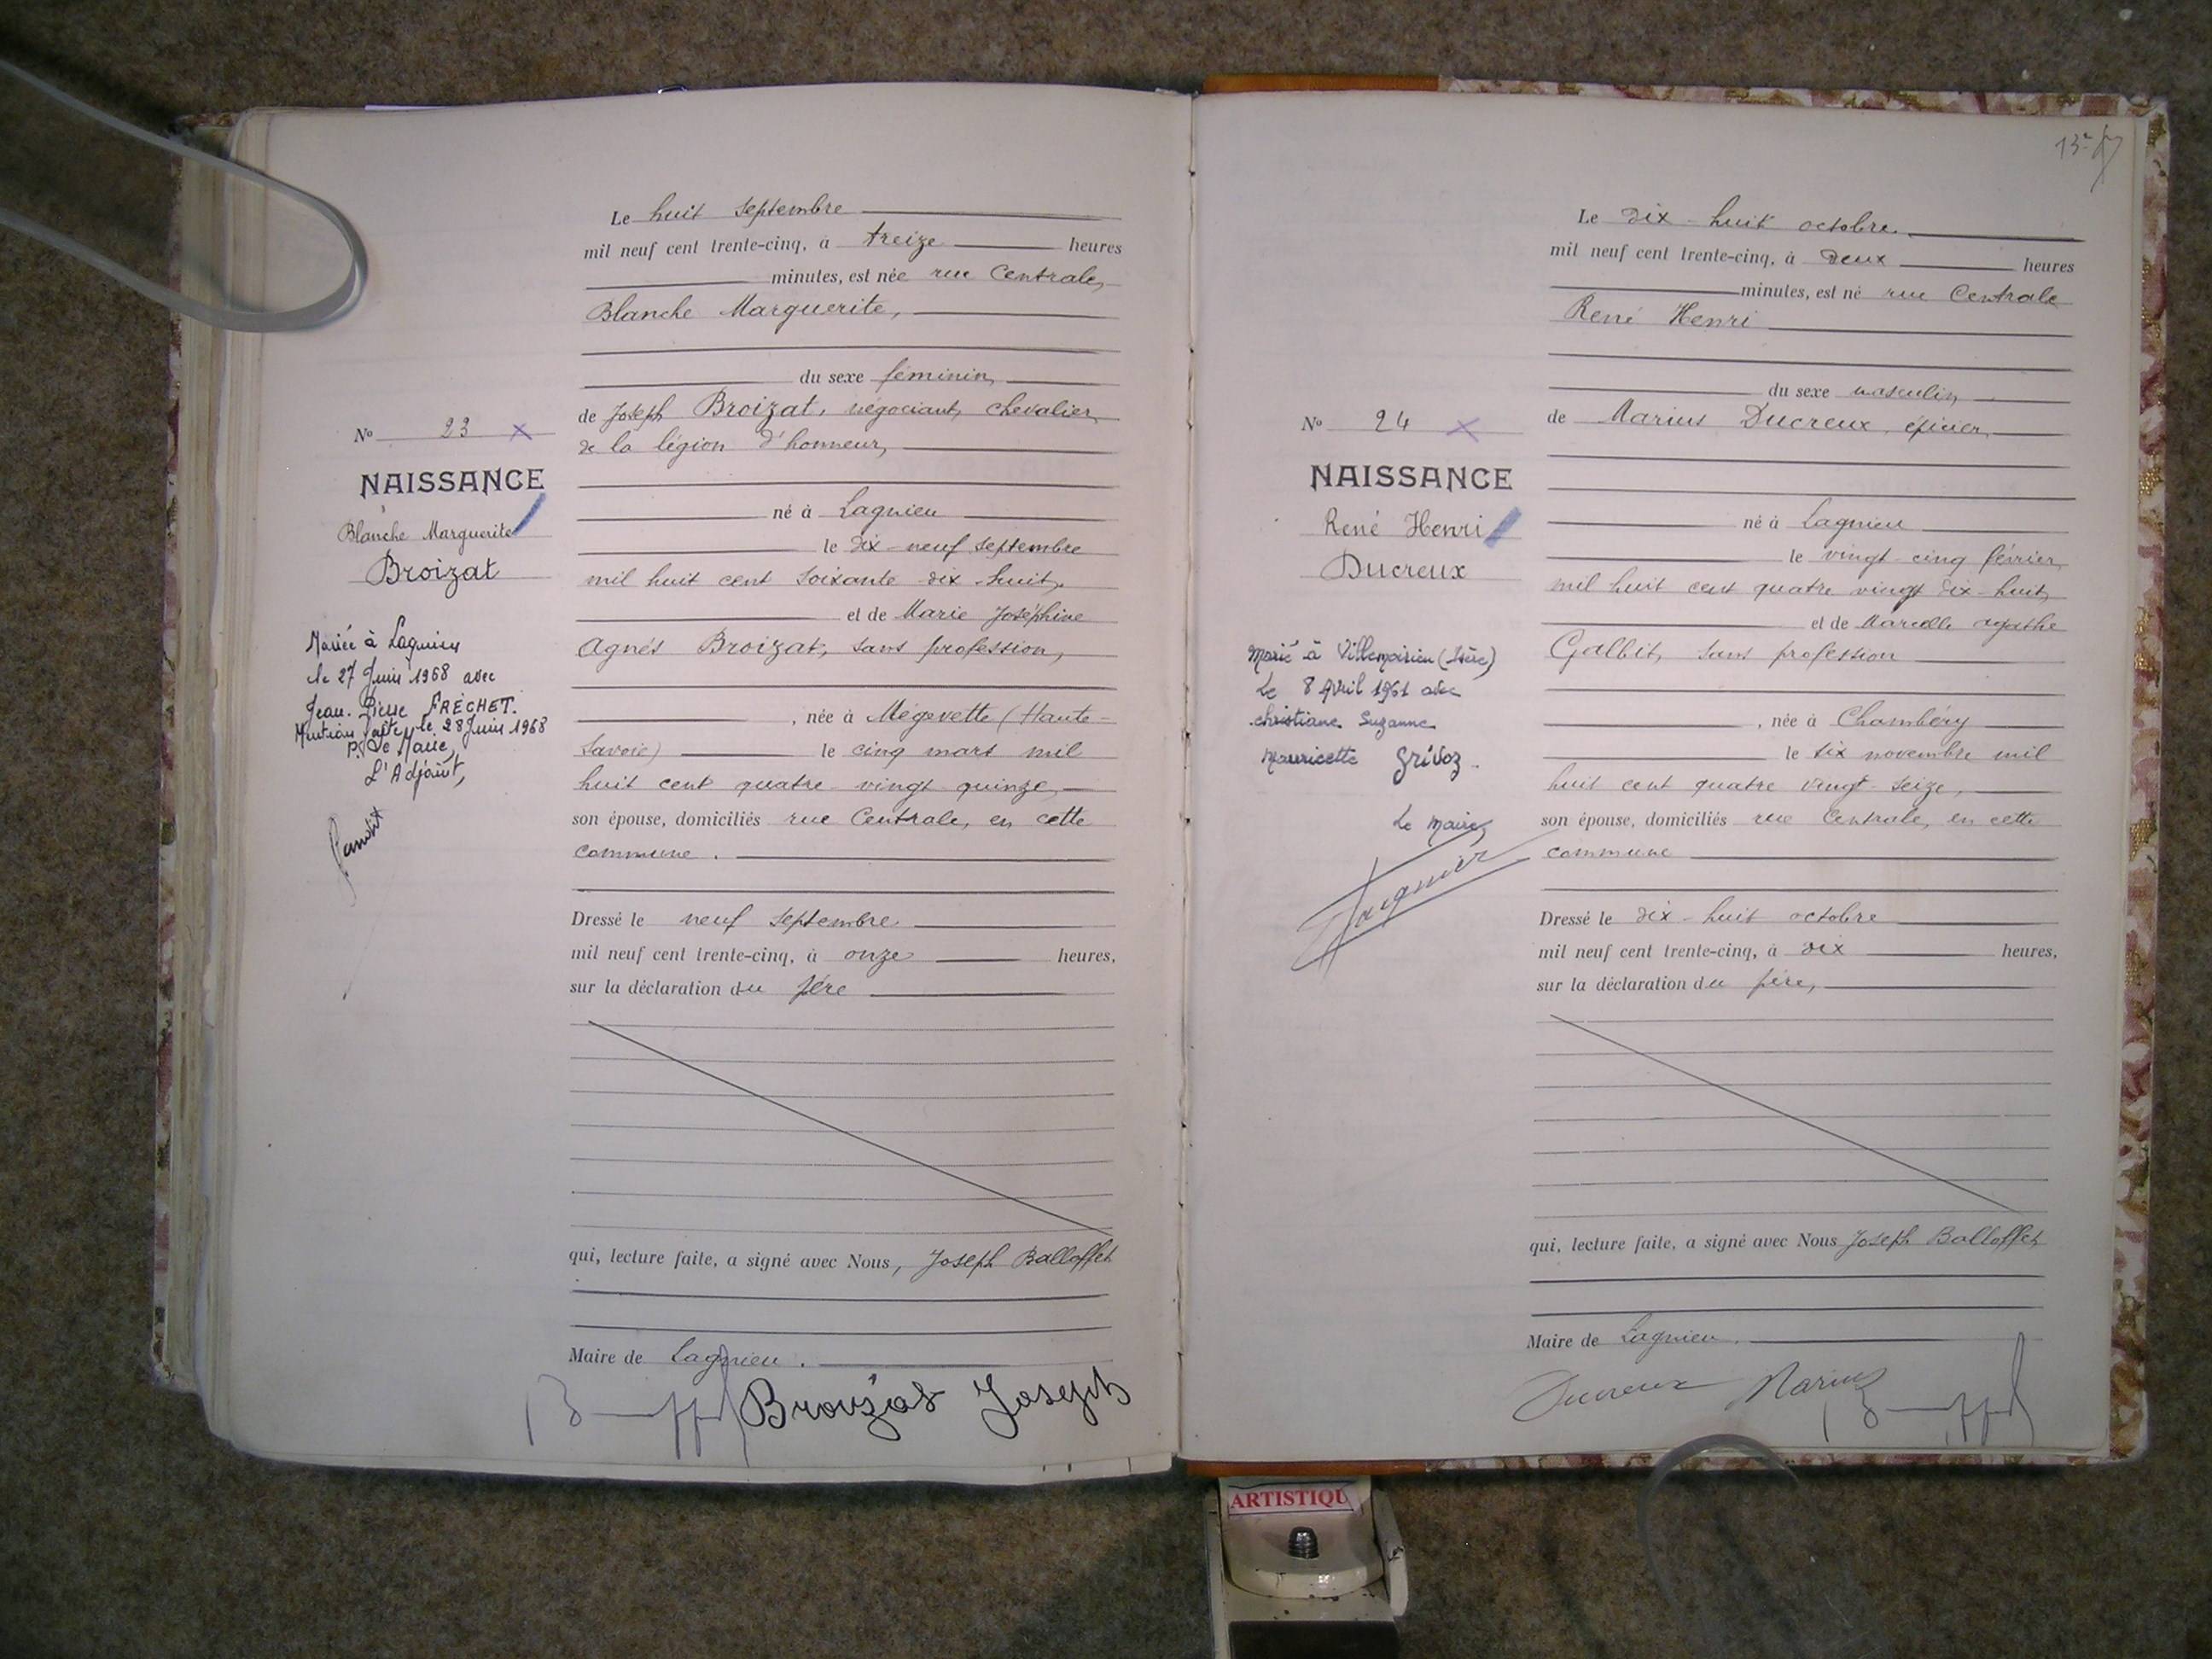 Le huit septembre
mil neuf cent trente-cinq, à treize heures
minutes, est née rue Centrale,
Blanche Marguerite,
du sexe féminin,
de Joseph Broizat, négociant, chevalier
de la légion d'honneur,
né à Lagnieu
le dix-neuf septembre
mil huit cent soixante dix-huit,
et de Marie Joséphine
Agnés Broizat, sans profession,
, née à Mégevette (Haute-
Savoie) le cinq mars mil
huit cent quatre-vingt-quinze,
son épouse, domiciliés rue Centrale, en cette
commune.
Dressé le neuf septembre
mil neuf cent trente-cinq, à onze heures,
sur la déclaration du père
qui, lecture faite, a signé avec Nous, Joseph Balloffet
Maire de Lagnieu.
Broizat Joseph
No 23
NAISSANCE
Blanche Marguerite
Broizat
Mariée à Lagnieu
le 27 Juin 1968 avec
Jean-Pierre FRÉCHET.
Mention faite le 28 Juin 1968
P. le Maire,
L'Adjoint,
Le dix-huit octobre
mil neuf cent trente-cinq, à deux heures
minutes, est né rue Centrale
René Henri
du sexe masculin
de Marius Ducreux, épicier,
né à Lagnieu
le vingt-cinq février
mil huit cent quatre vingt dix-huit,
et de Marcelle Agathe
Galbit, sans profession
, née à Chambéry
le six novembre mil
huit cent quatre vingt-seize,
son épouse, domiciliés rue Centrale, en cette
commune
Dressé le dix-huit octobre
mil neuf cent trente-cinq, à dix heures,
sur la déclaration du père,
qui, lecture faite, a signé avec Nous Joseph Balloffet
Maire de Lagnieu.
Ducreux Marius
No 24
NAISSANCE
René Henri
Ducreux
Marié à Villemoirieu (Isère)
Le 8 Avril 1961 avec
Christiane Suzanne
Mauricette Grivoz.
Le Maire,
ARTISTIQU